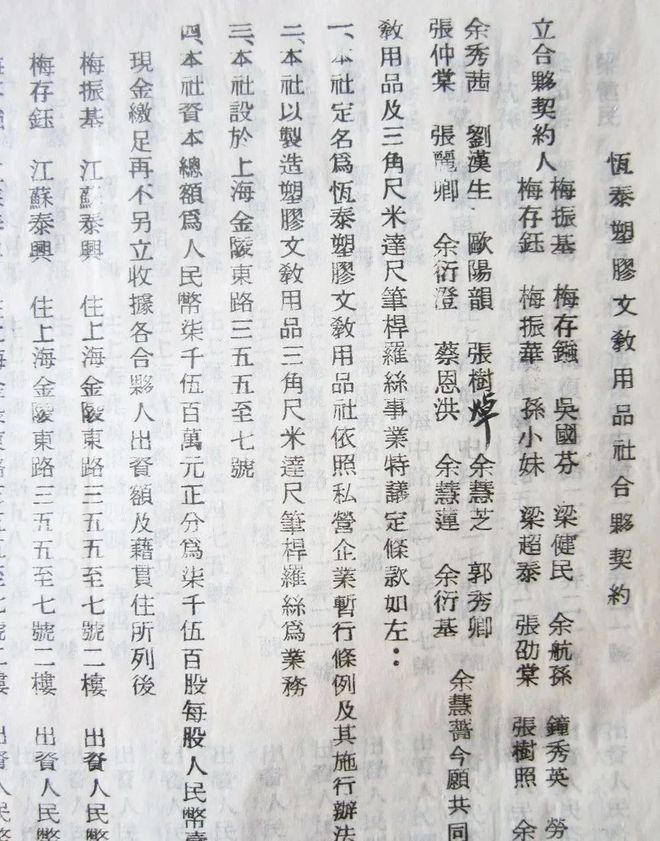 恆泰塑膠文敎用品社合夥契約
立合夥契約人
梅振基 梅存鏹 吳國芬 梁健民 余航孫 鐘秀英 勞
梅存鈺 梅振華 孫小妹 梁超泰 張劭棠 張樹照 余
余秀茜 劉漢生 歐陽韻 張樹焯 余慧芝 郭秀卿
張仲棠 張麗卿 余衍澄 蔡恩洪 余慧蓮 余衍基 余慧薔今願共同
敎用品及三角尺米達尺筆桿羅絲事業特議定條款如左：
一、本社定名爲恆泰塑膠文敎用品社依照私營企業暫行條例及其施行辦法
二、本社以製造塑膠文敎用品三角尺米達尺筆桿羅絲爲業務
三、本社設於上海金陵東路三五五至七號
四、本社資本總額爲人民幣柒千伍百萬元正分爲柒千伍百股每股人民幣壹
現金繳足再不另立收據各合夥人出資額及藉貫住所列後
梅振基 江蘇泰興 住上海金陵東路三五五至七號二樓 出資人民幣
梅存鈺 江蘇泰興 住上海金陵東路三五五至七號二樓 出資人民幣